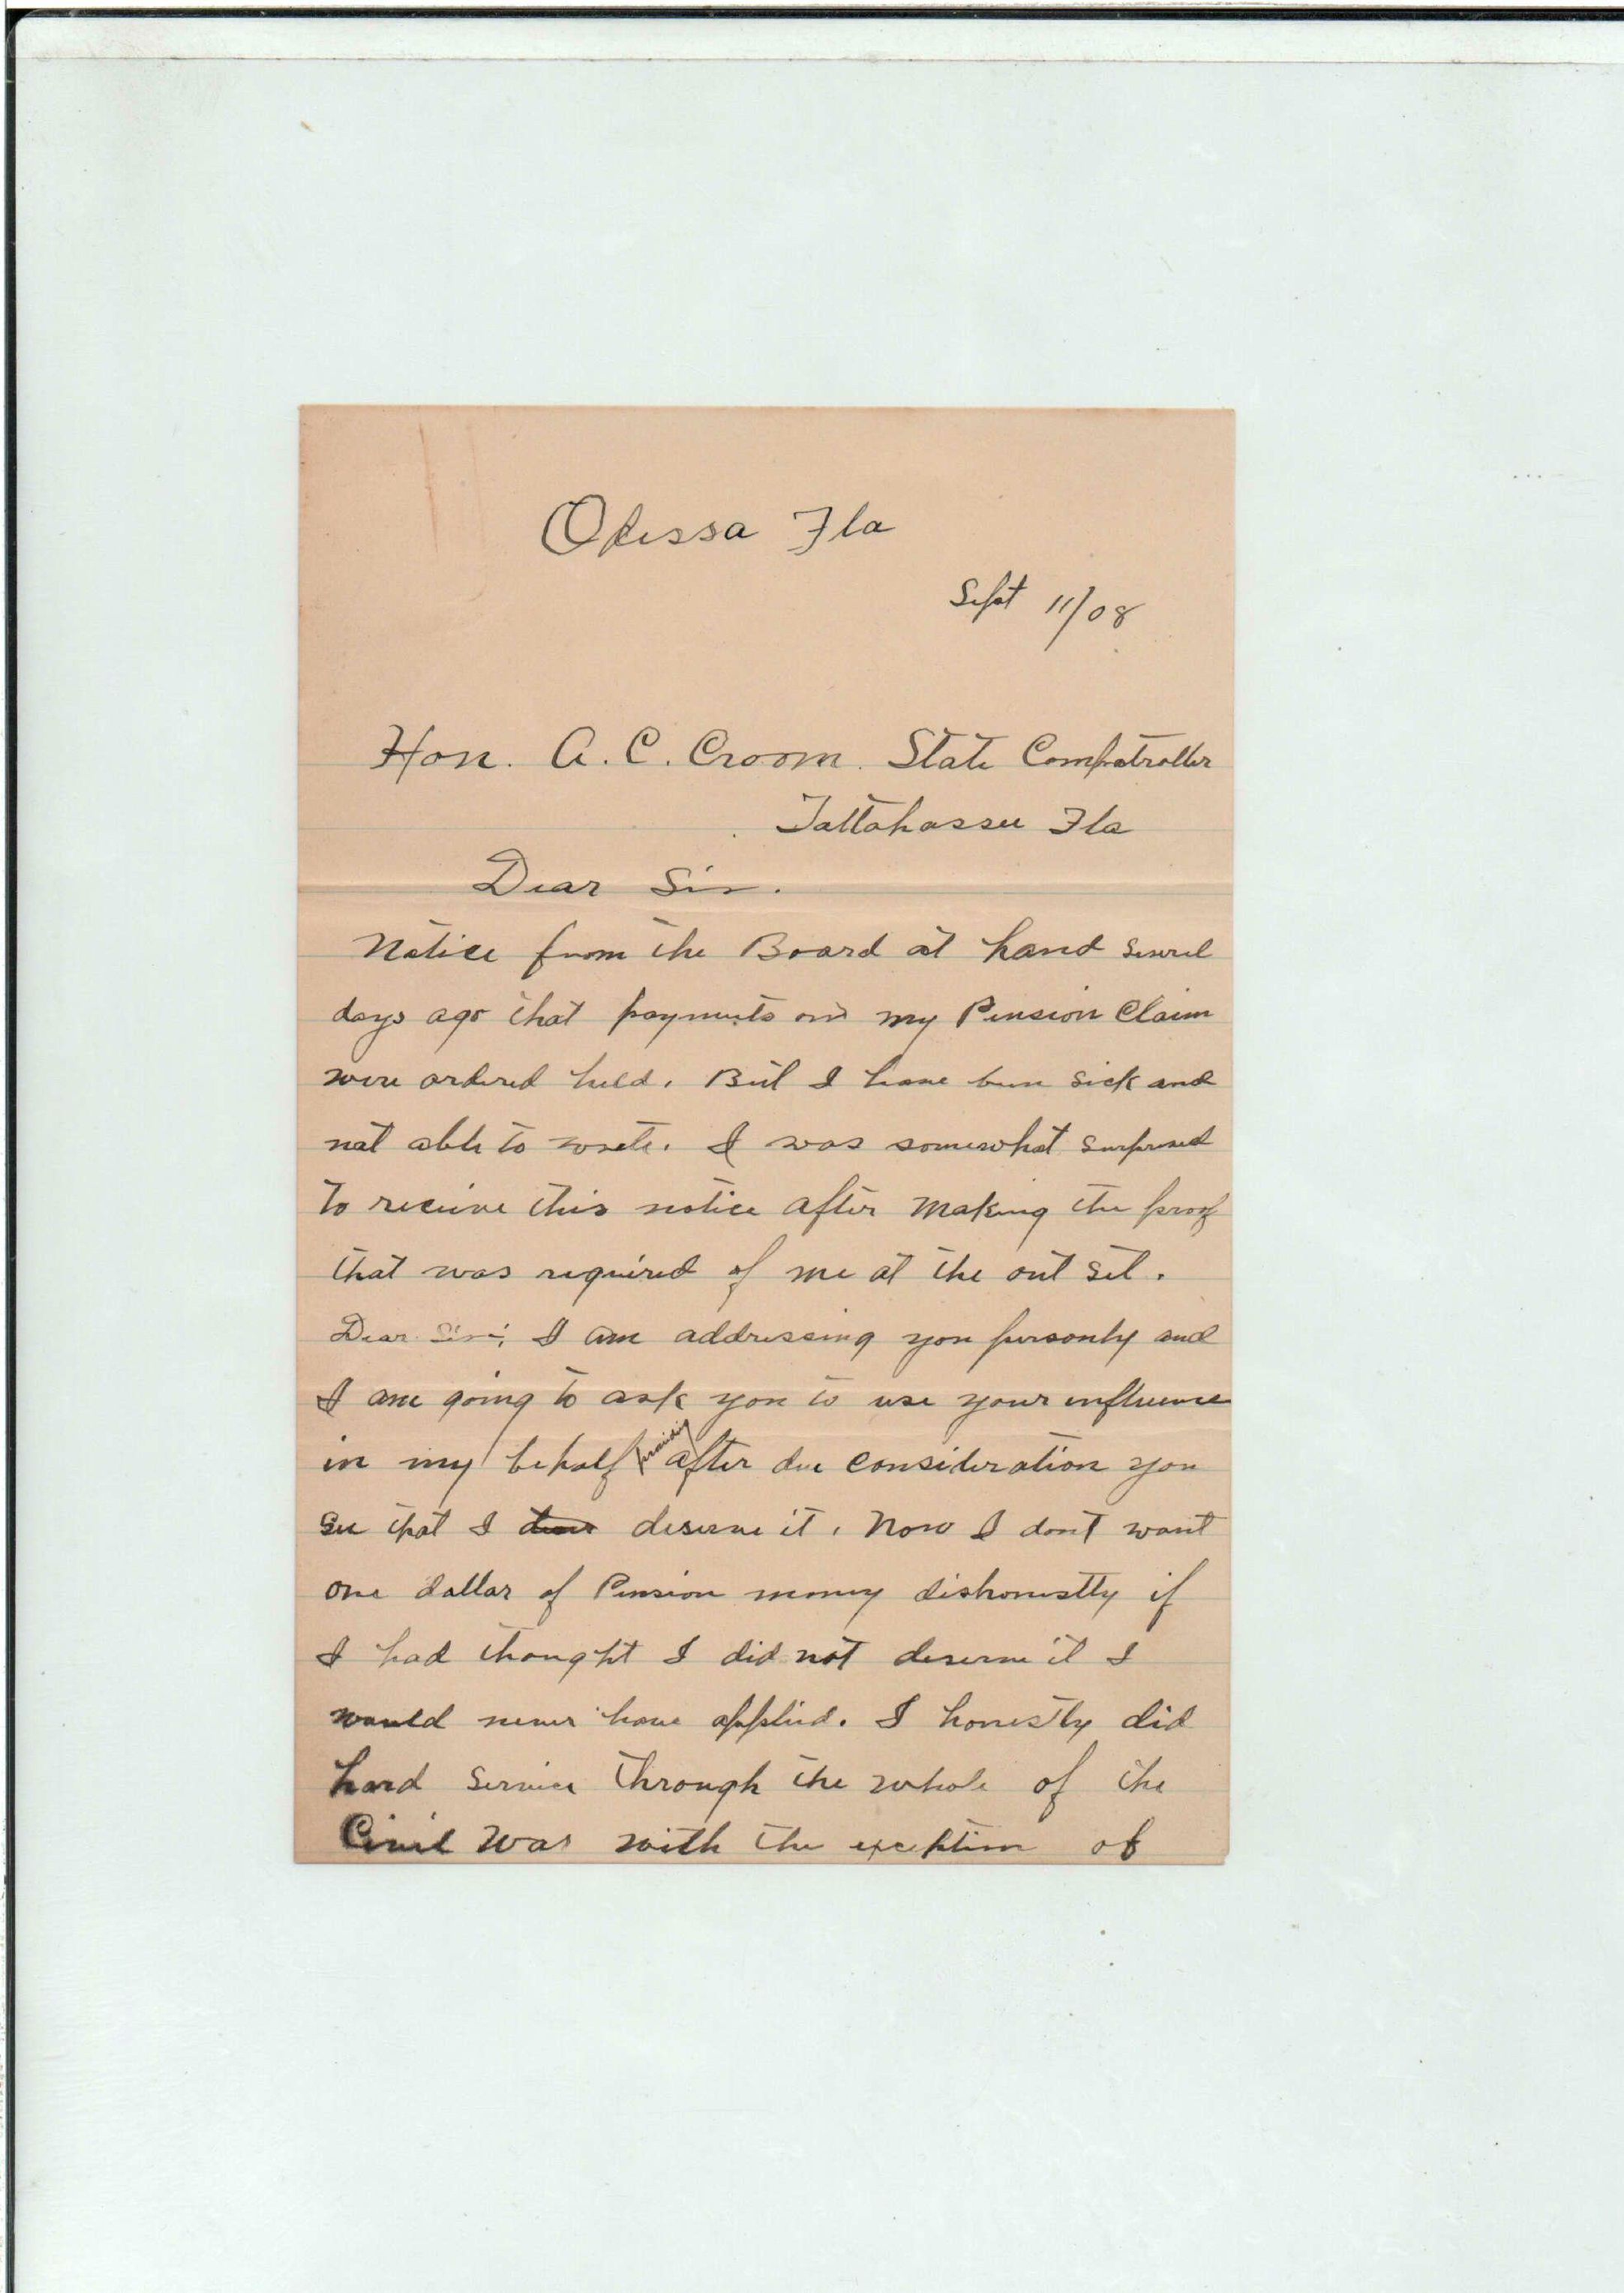 Odessa Fla
Sept 11/08
Hon. A. C. Croom. State Comptroller
Tallahassee Fla
Dear Sir.
Notice from the Board at hand severel
days ago that payments on my Pension Claim
were ordered held. But I have been sick and
not able to write. I was somewhat surprised
to receive this notice after making the proof
that was required of me at the out set.
Dear Sir; I am addressing you personly and
I am going to ask you to use your influence
in my behalf providing after due consideration you
see that I deserve it. Now I dont want
one dollar of Pension money dishonestly if
I had thought I did not deserve it I
would never have applied. I honestly did
hard Service through the whole of the
Civil War with the exception of